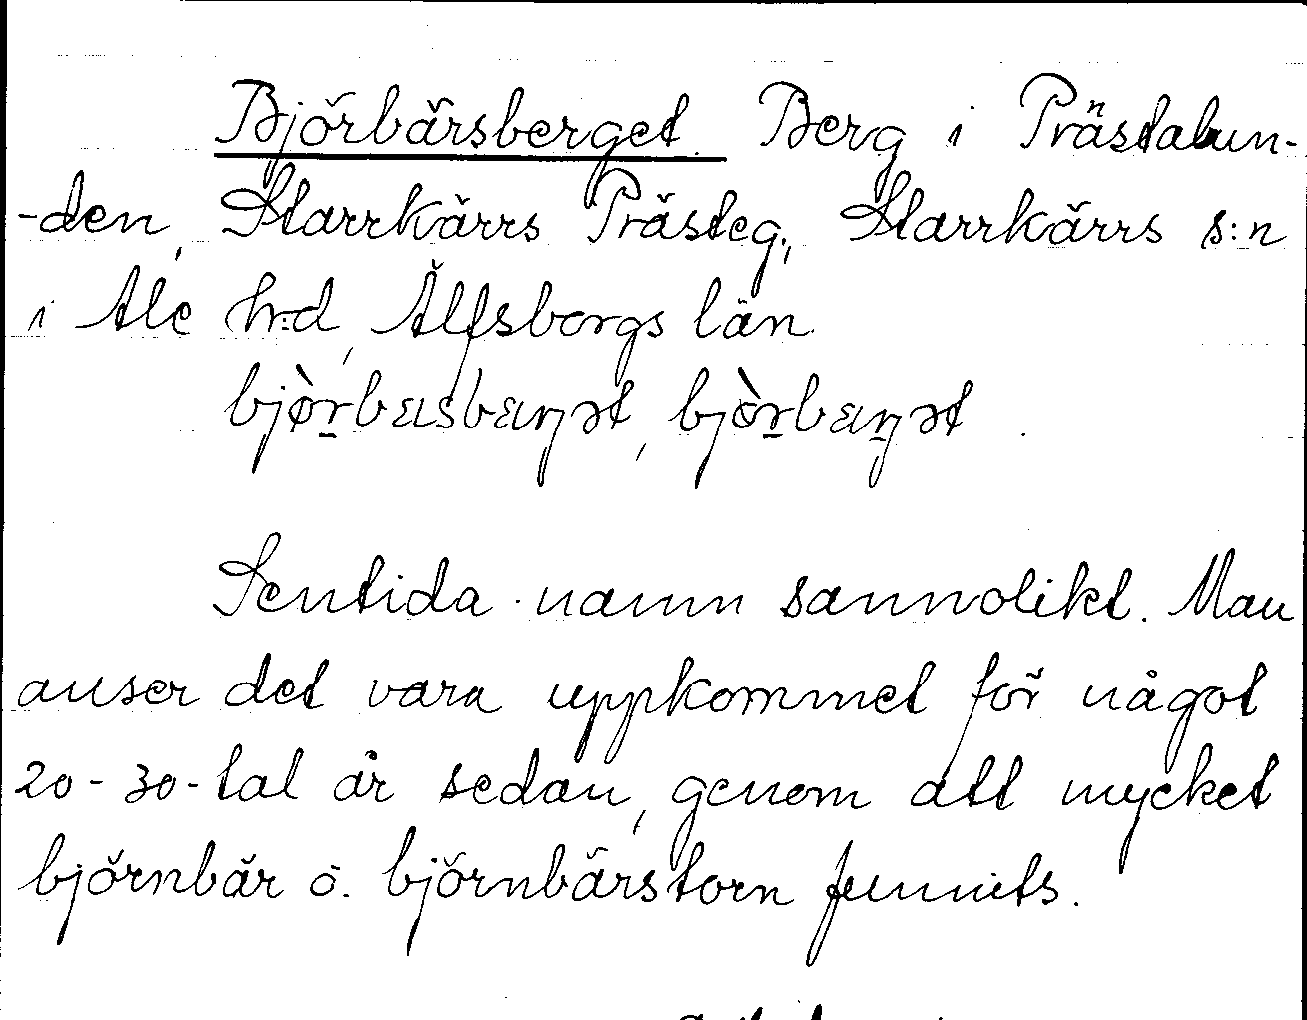 Björbärsberget. Berg i Prästalun-
-den, Starrkärrs Prästeg., Starrkärrs s:n
i Ale h:d, Älfsborgs län.
bjòrbasbaŋət, bjòrbaŋət.
Sentida namn sannolikt. Man
anser det vara uppkommet för något
20-30-tal år sedan, genom att mycket
björnbär o. björnbärstorn funnits.